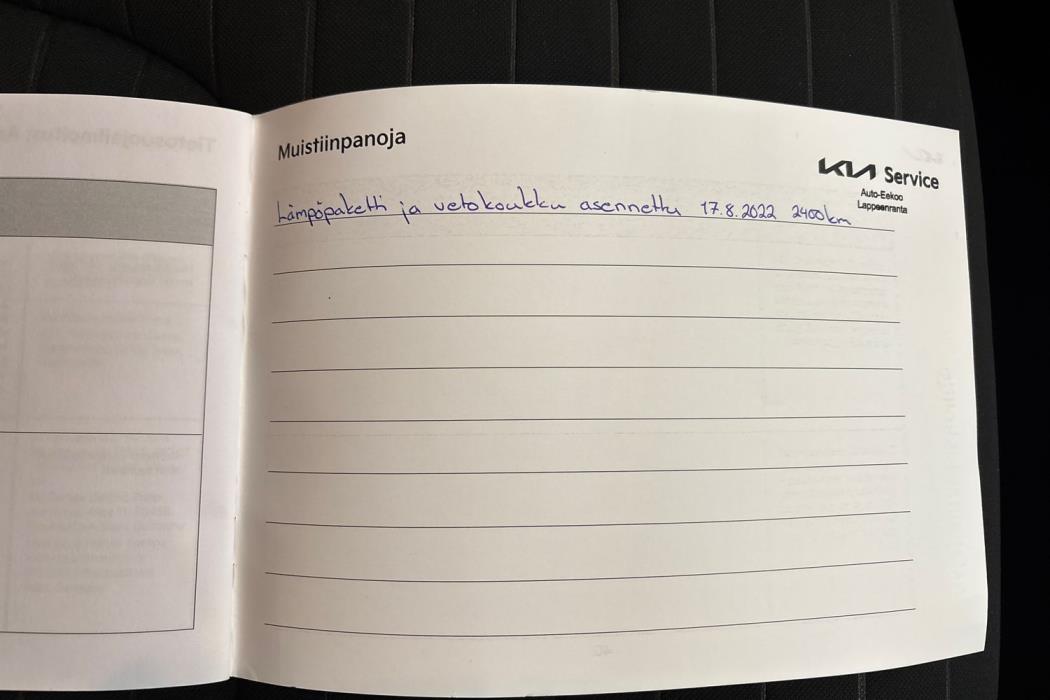 Muistiinpanoja
KIA Service
Auto-Eekoo
Lappeenranta
Lämpöpaketti ja vetokoukku asennettu 17.8.2022 2400km